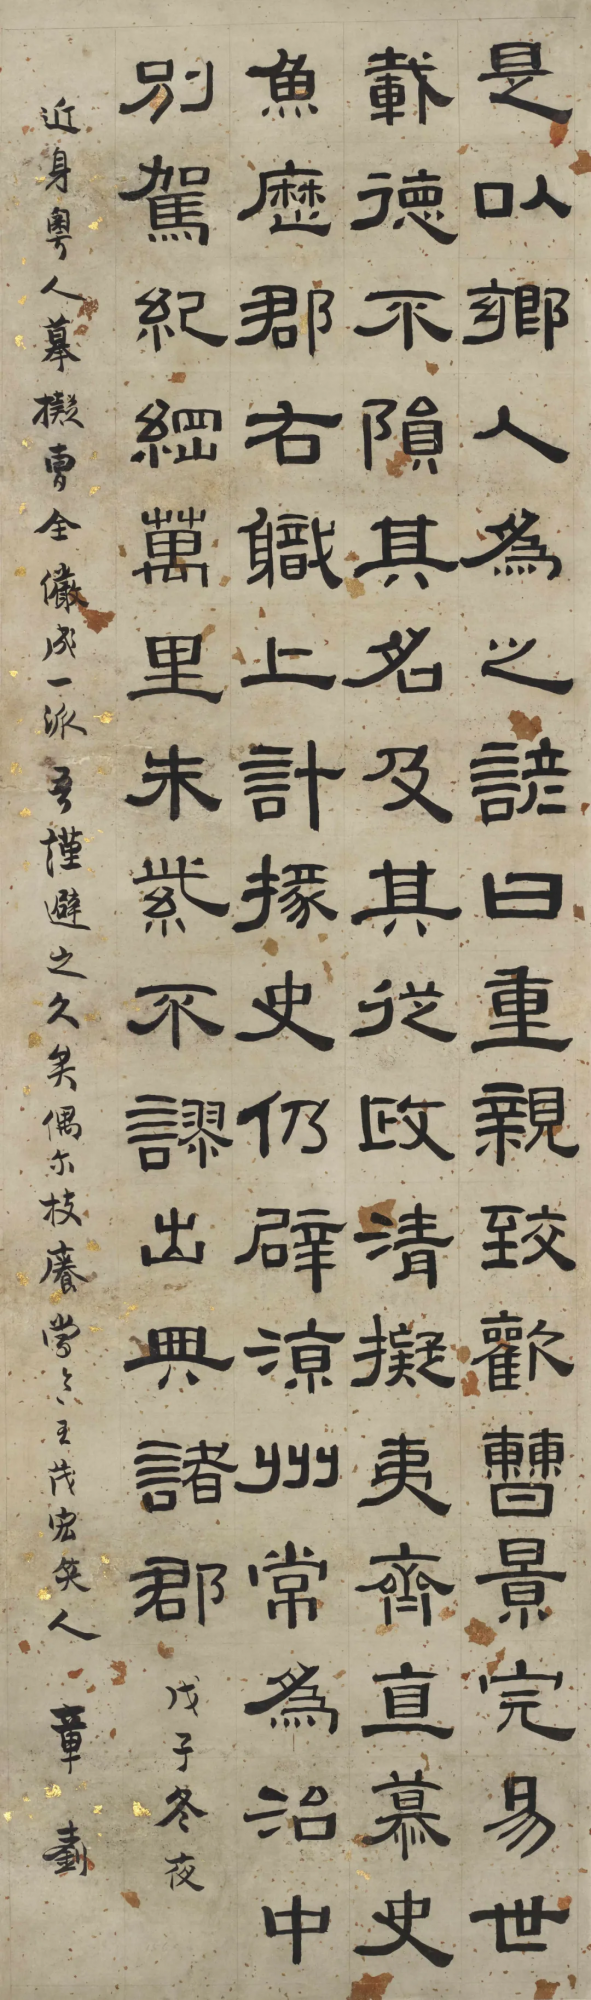 是以鄉人為之諺曰重親致歡曹景完易世
載德不隕其名及其從政清擬夷齊直慕史
魚歷郡右職上計掾史仍辟涼州常為治中
別駕紀綱萬里朱紫不謬出典諸郡 戊子冬夜
近身粵人摹擬曹全儼成一派吾謹避之久矣偶尔枝癢當令王茂宏笑人 章士釗